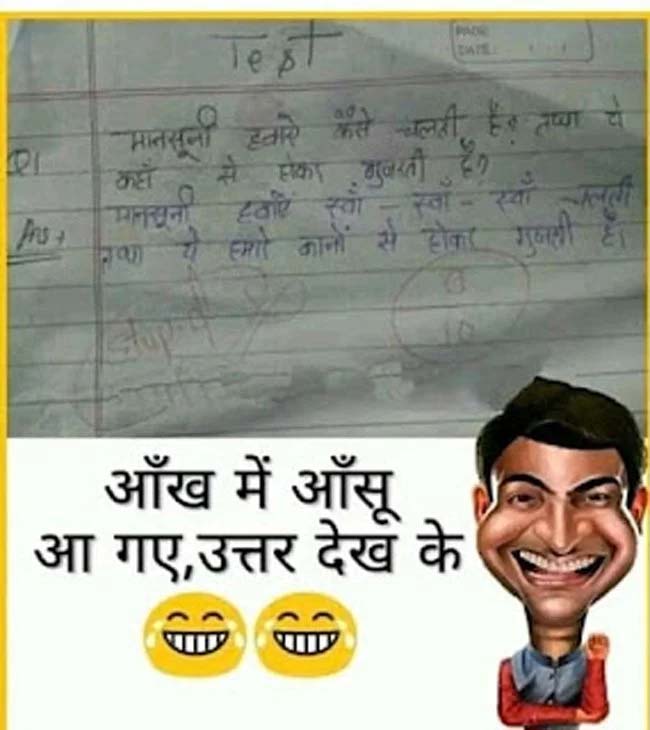 Test
PAGE
DATE
Q1 मानसूनी हवाऐं कैसे चलती हैं? तथा ये
कहाँ से होकर गुजरती हैं?
Ans → मानसूनी हवाऐं स्वाँ - स्वाँ - स्वाँ चलती
तथा ये हमारे कानों से होकर गुजरती हैं।
Stupid
0
10
आँख में आँसू
आ गए,उत्तर देख के